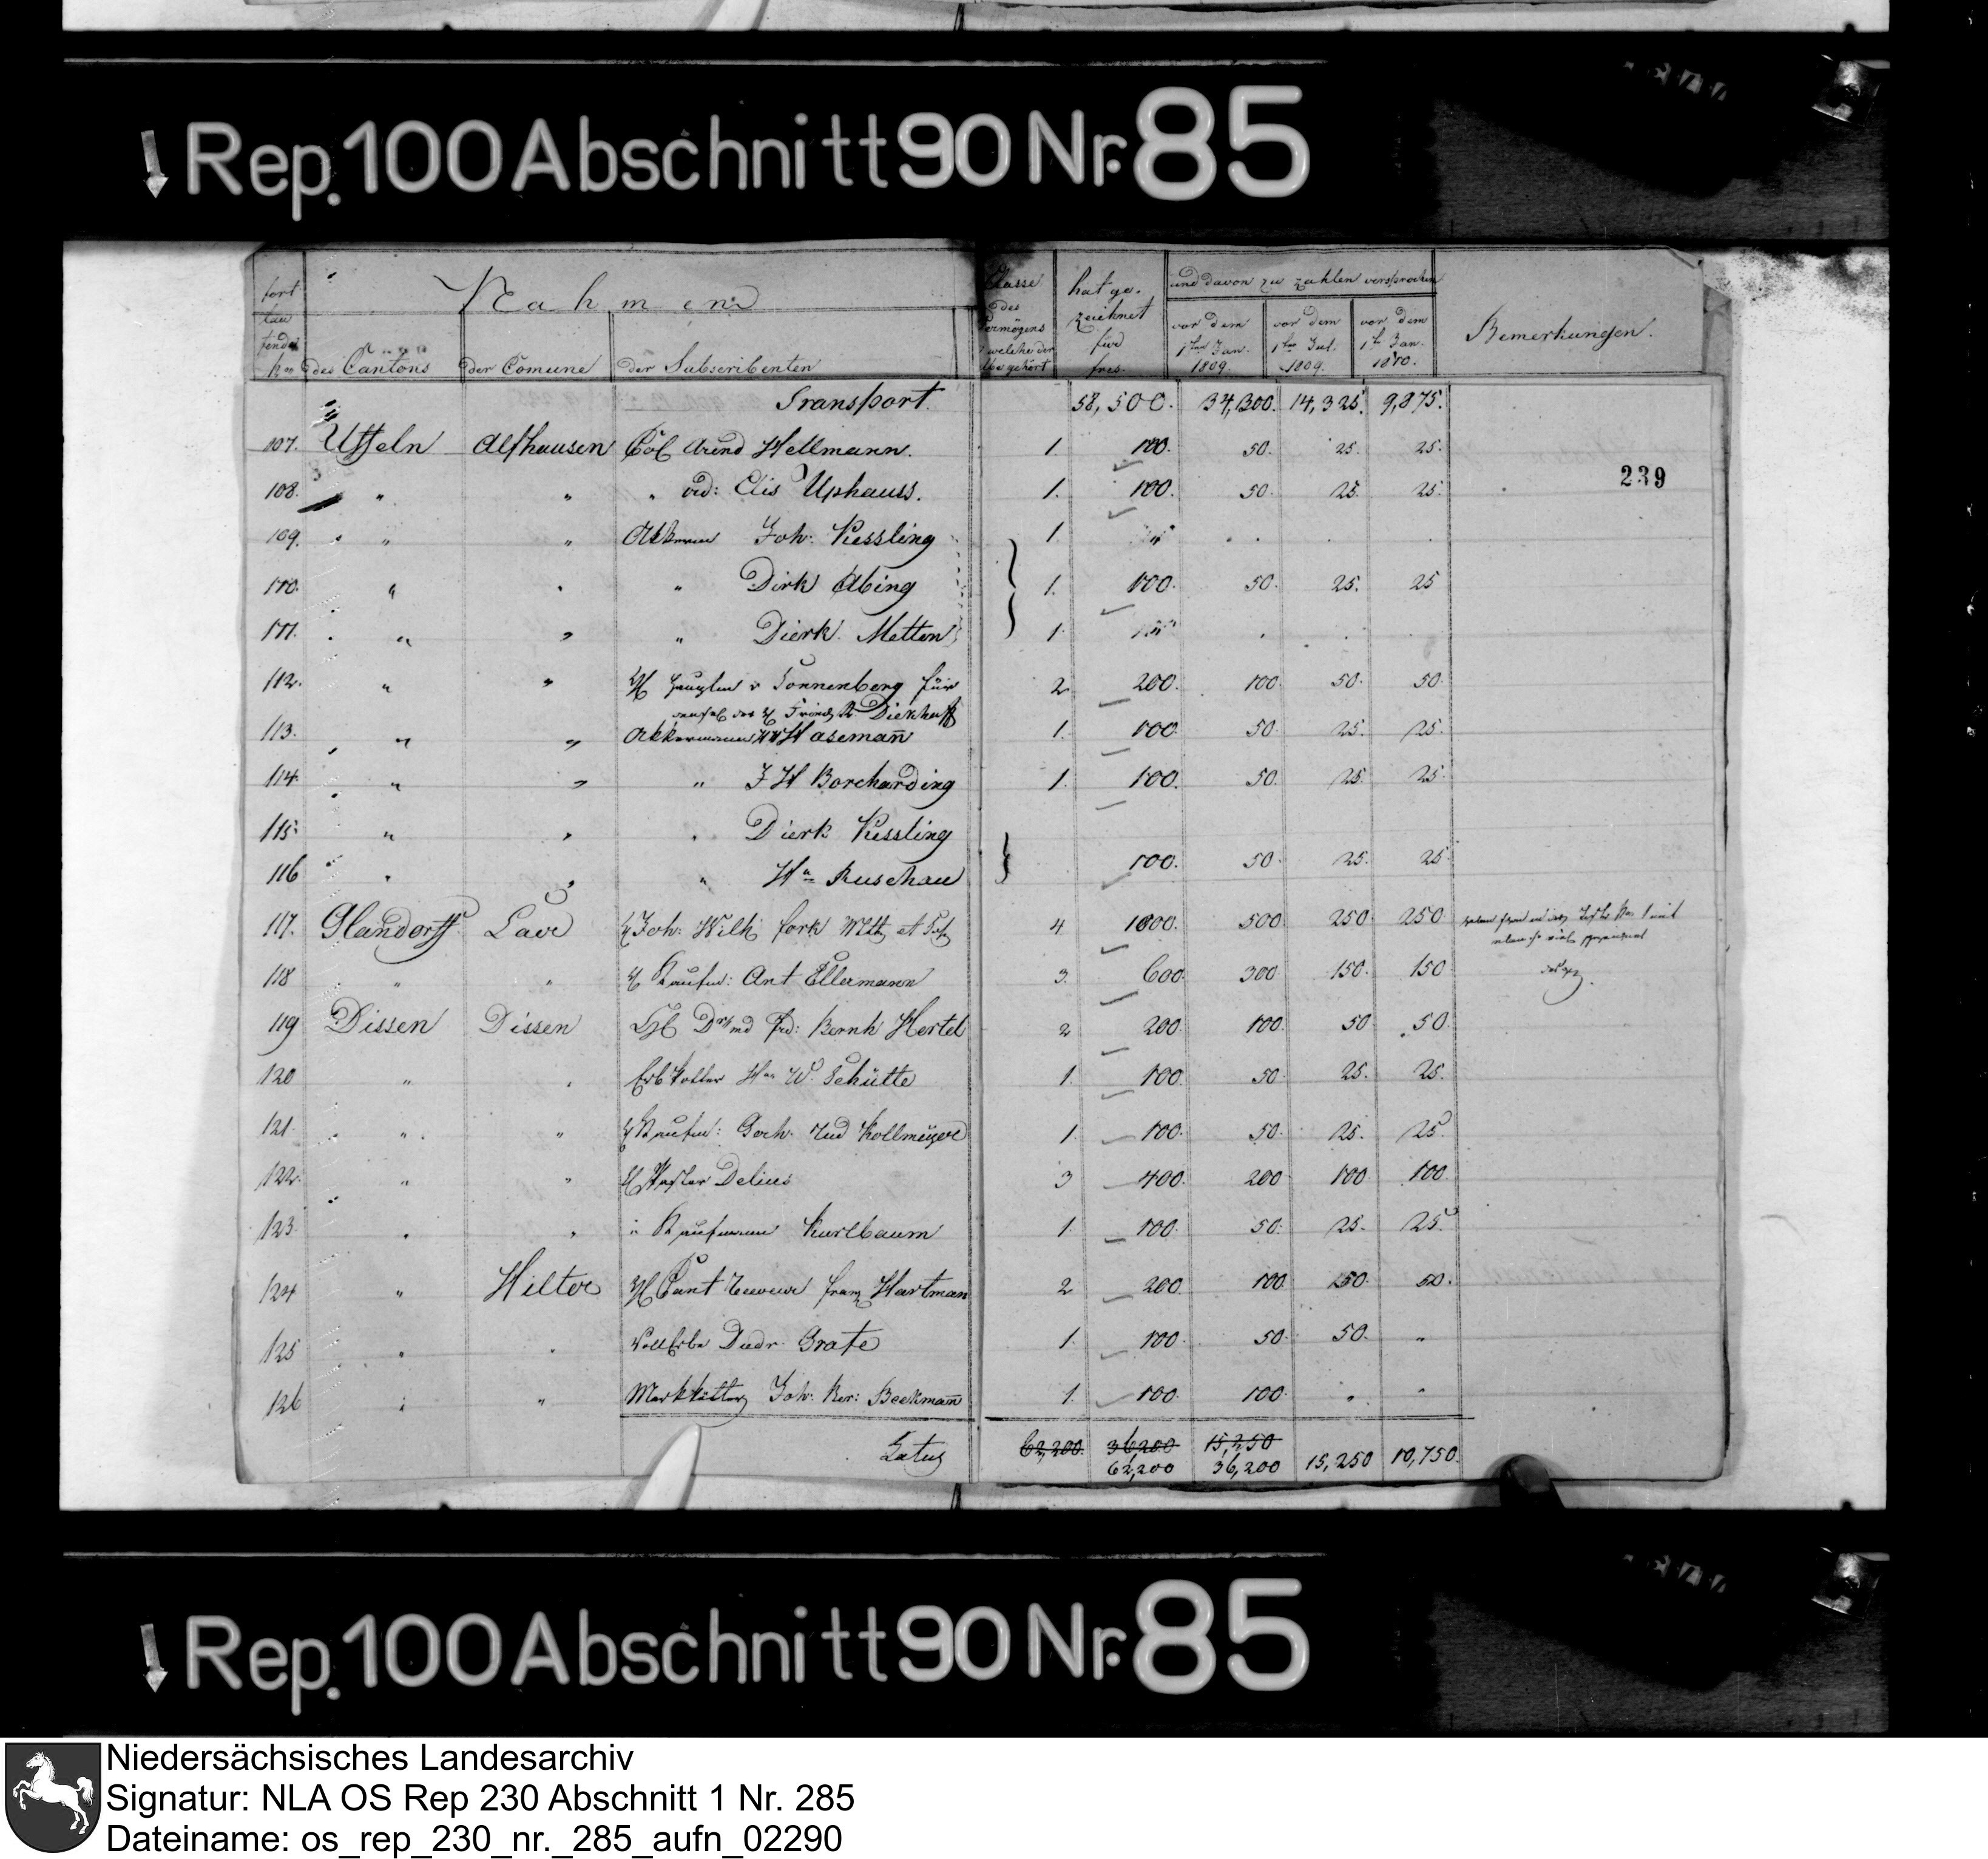 Rep. 100 Abschnitt 90 Nr. 85
fort lau fende Nro
Nahmen
des Cantons
der Comune
der Subscribenten
Classe des Vermögens welche der gehört
hat ge. zeichnet für frcs.
und davon zu zahlen versprochen
vor dem 1ten Jan. 1809.
vor dem 1ten Jul. 1809.
vor dem 1ten Jan. 1810.
Bemerkungen.
Transport. 58,500. 34,300. 14,325. 9,875.
107. Uffeln Alfhausen Col Arend Wellmann. 1. 100. 50. 25. 25.
239
108. " " " Elis Uphauss. 1. 100. 50. 25. 25.
109. " " Akkerm Joh: Kessling 1. "
110. " " " Dirk Abing 1. 100. 50. 25. 25
111. " " " Dierk Metten 1. "
112. " " v Sonnenberg für 2 200. 100. 50. 50.
Diekhoff
113. " " Akkermann Hasemañ 1. 100 50. 25. 25.
114. " " " J H Borcharding 1. 100. 50. 25. 25.
115. " " " Dierk Kessling
116 " " " Hn Ruschau 100. 50. 25. 25
117. Glandorff Laer H Joh: Wilh 4 1000. 500 250. 250
118 " " H Kaufm: Ant Ellermann 3. 600. 300 150. 150
119 Dissen Dissen Bernh Hertel 2 200. 100. 50. 50.
120 " " Erbkotter W. Schütte 1. 100. 50. 25. 25.
121. " " H Kaufm: Kollmeyer 1. 100. 50. 25. 25.
122. " " H Pastor Delius 3 400. 200 100 100.
123. " " " Kaufmann Kurlbaum 1. 100. 50. 25. 25.
124 " Hilter H Cant Franz Hartman 2 200 100 50. 50.
125 " " Vollerbe Grate 1. 100. 50. 50. "
126 " " Markkötter Joh: Ber: Beckmañ 1. 100. 100. " "
Latus 62,200. 36,200 15,250
62,200 36,200 15,250 10,750.
Rep. 100 Abschnitt 90 Nr. 85
Niedersächsisches Landesarchiv
Signatur: NLA OS Rep 230 Abschnitt 1 Nr. 285
Dateiname: os_rep_230_nr._285_aufn_02290